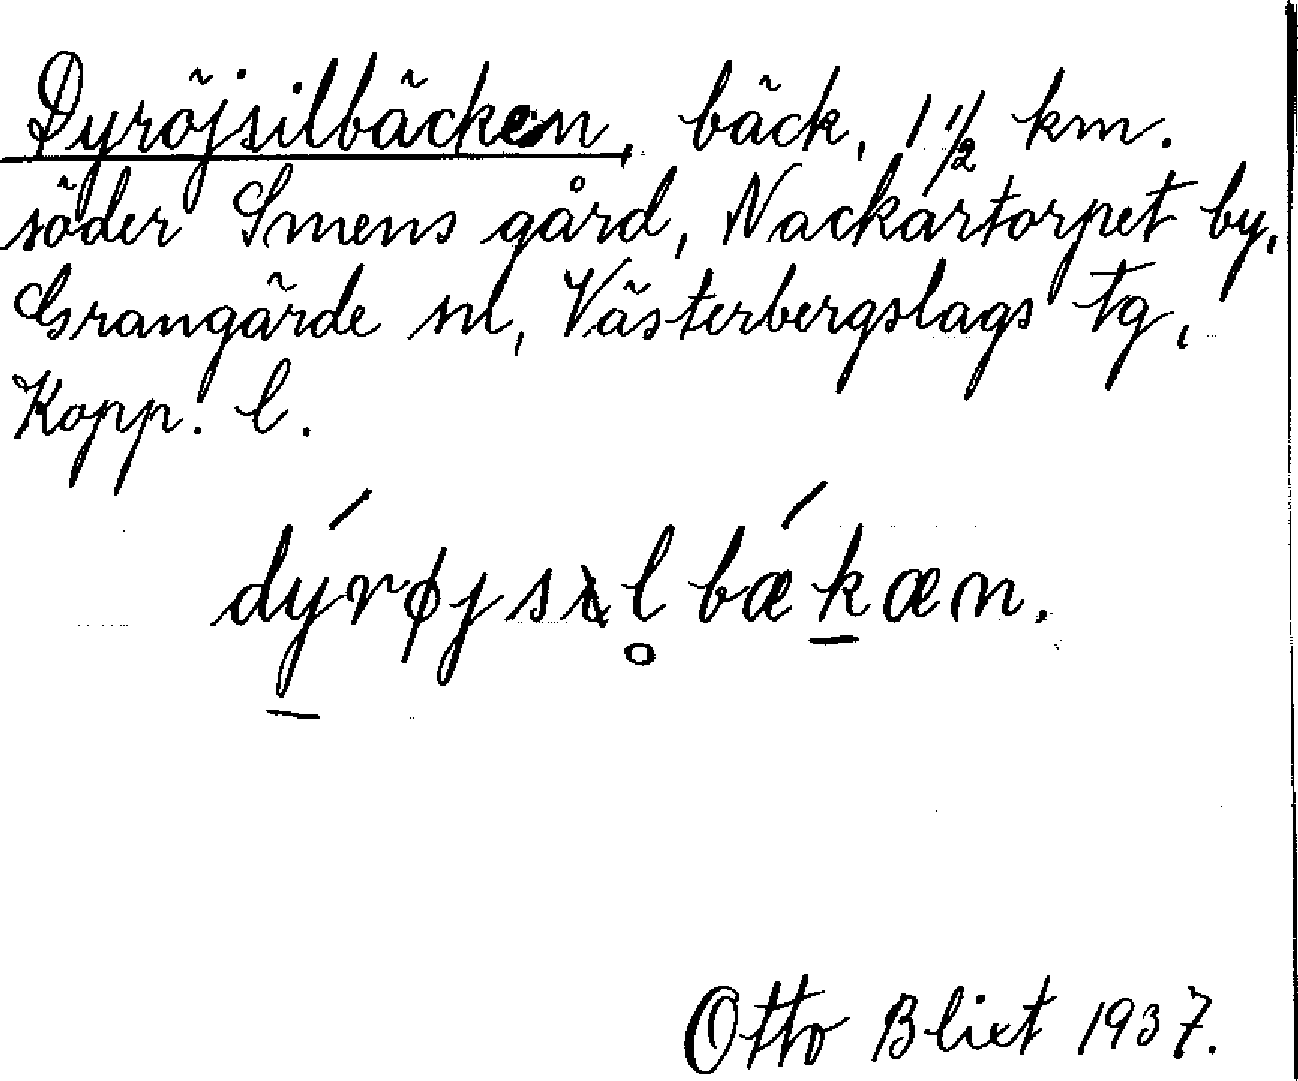 Dyröjsilbäcken, bäck, 1 1/2 km.
söder Smens gård, Nackartorpet by,
Grangärde sn, Västerbergslags tg,
Kopp. l.
dýrøjsıl̥bǽkæn.
Otto Blixt 1937.